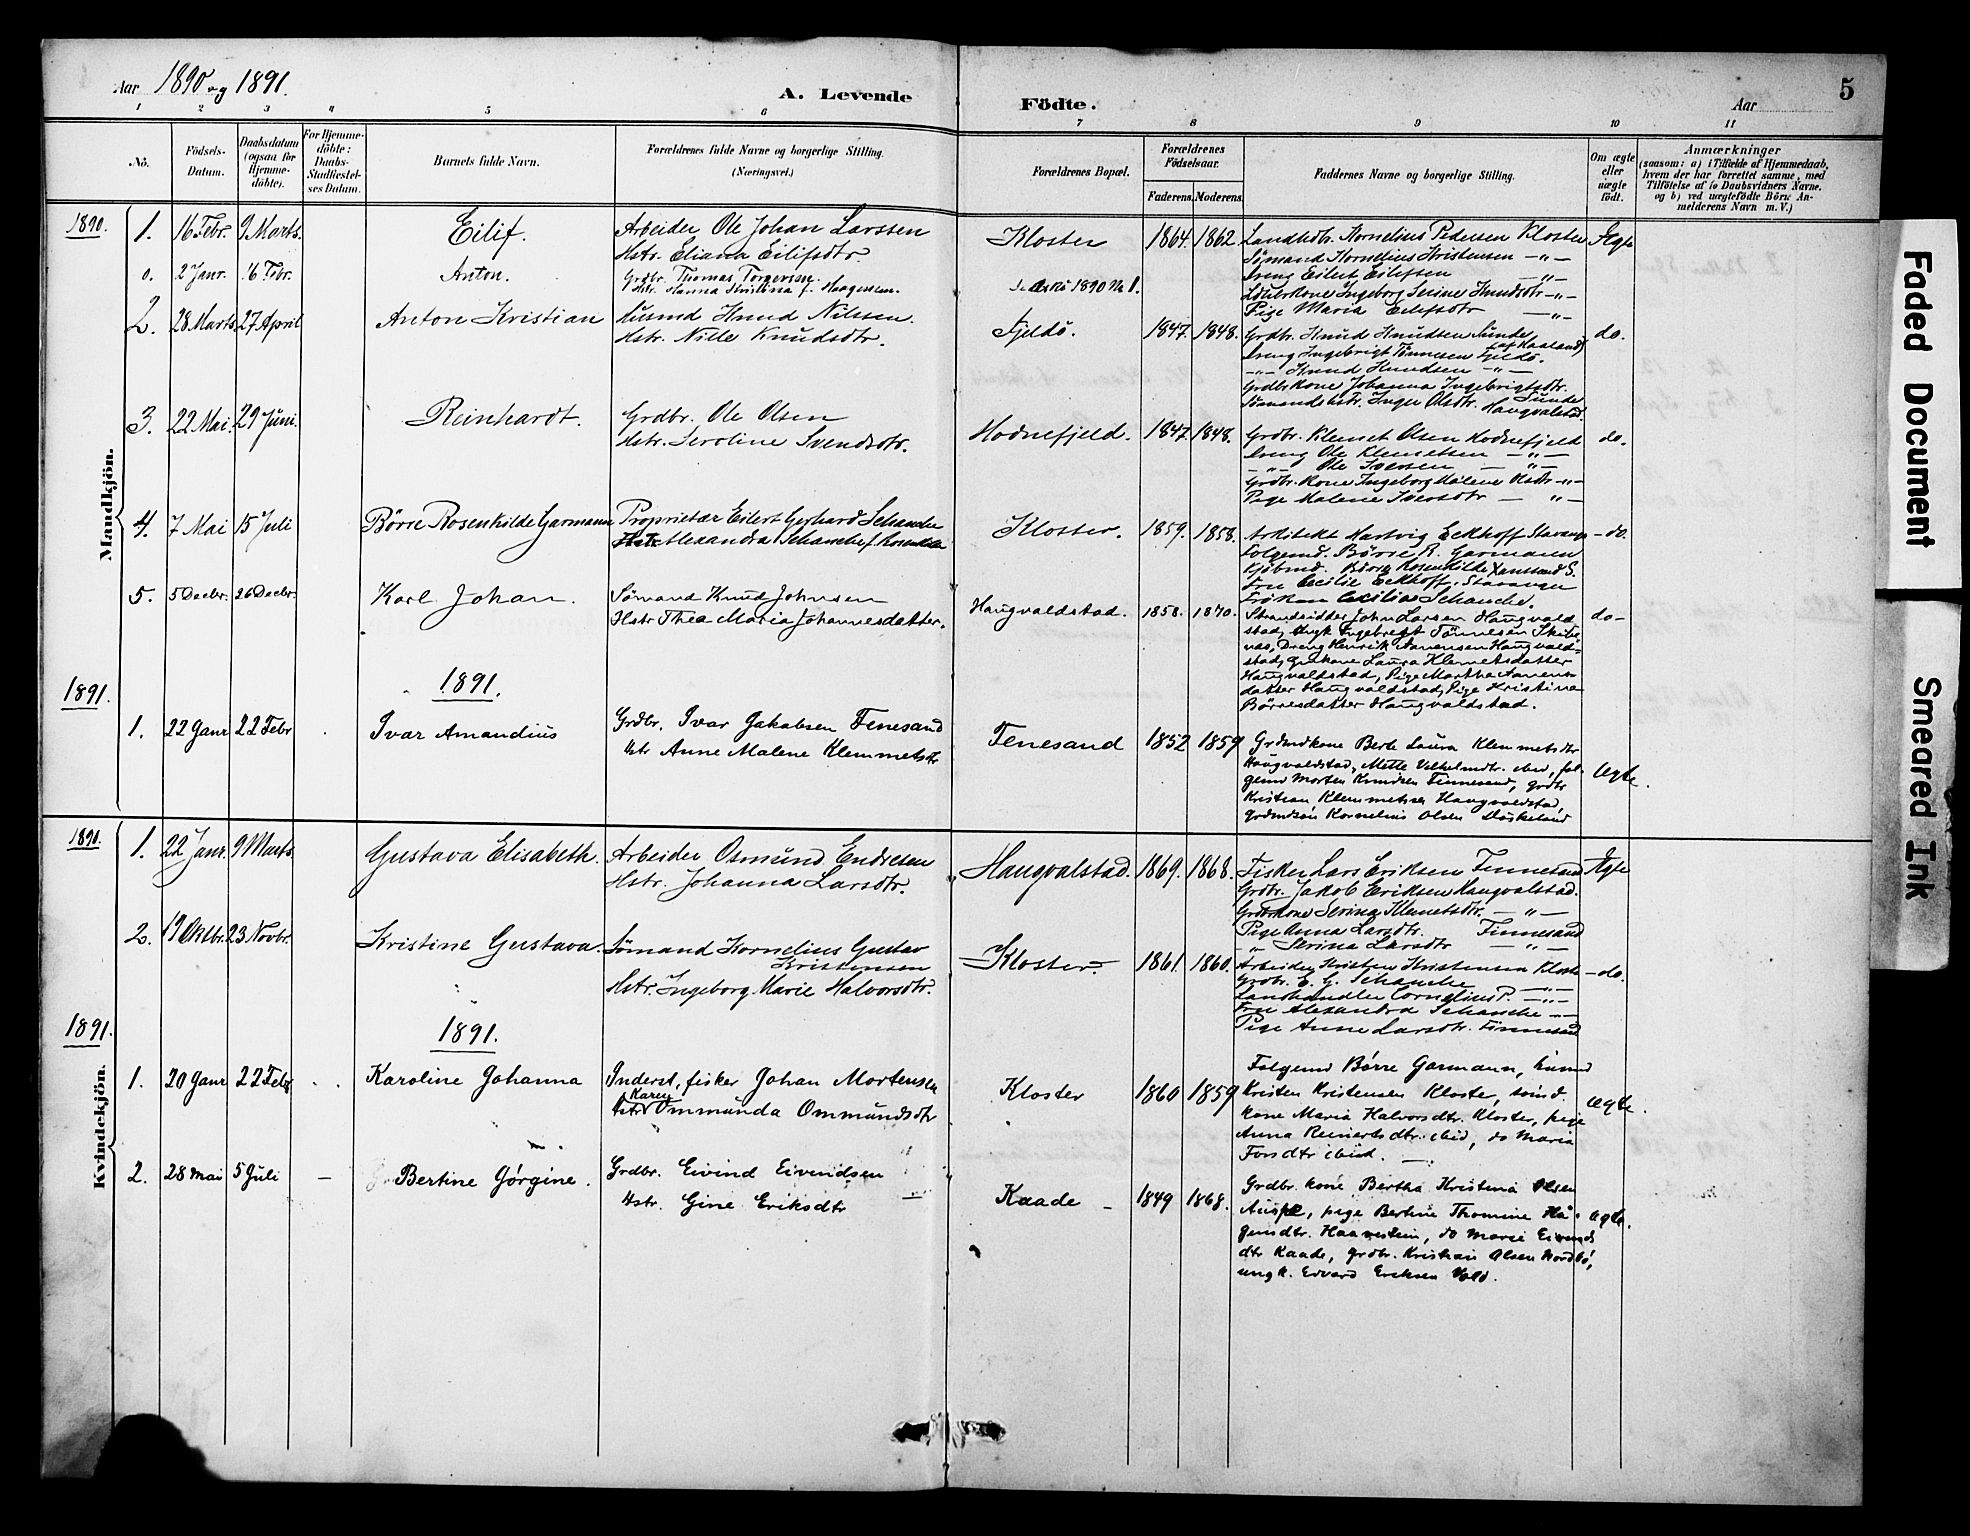 Aar 1890 og 1891.
A. Levende
Födte.
Aar
5
1 2 3 4 5 6 7 8 9 10 11
No.
Födsels-
Datum.
Daabsdatum
(ogsaa for
Hjemme-
döbte).
For Hjemme-
döbte:
Daabs-
Stadfæstel-
ses Datum.
Barnets fulde Navn.
Forældrenes fulde Navne og borgerlige Stilling.
(Næringsvei.)
Forældrenes Bopæl.
Forældrenes
Födselsaar.
Faderens. Moderens.
Faddernes Navne og borgerlige Stilling.
Om ægte
eller
uægte
födt.
Anmærkninger
(saasom: a) i Tilfælde af Hjemmedaab,
hvem der har forrettet samme, med
Tilföielse af to Daabsvidners Navne,
og b) ved uægtefödte Börn: An-
melderens Navn m. V.)
Mandkjön.
1890.
1. 16 Febr. 9 Marts. Eilif.
Arbeider Ole Johan Larssen
Hstr. Eliana Eilifsdtr.
Kloster 1864. 1862.
Landhdlr. Kornelius Pedersen Kloster
Sømand Kornelius Kristensen -"-
Dreng Eilert Eilefsen -"-
Ingeborg Serine Knudsdtr -"-
Pige Maria Eilifsdtr -"-
Ægte
0. 2 Janr. 16 Febr. Anton.
Grdbr. Thomas Torgersen
Hstr. Hanna Kristina f. Haagensen.
1890 No 1.
2. 28 Marts 27 April Anton Kristian
Husmd Knud Nilssen.
Hstr. Nille Knudsdtr.
Fjeldø. 1847. 1848.
Grdbr. Knud Knudsen Sunde
(af Haaland)
Dreng Ingebrigt Tønnesen Fjeldø.
-"- Knud Knudsen -"-
Grdbrkone Johanna Ingebrigtsdtr.
Sunde
Sømandshstr. Inger Olsdtr. Haugvalstad.
do.
3. 22 Mai. 29 Juni. Reinhardt.
Grdbr. Ole Olsen
Hstr. Seroline Svendsdtr.
Hodnefjeld. 1847. 1848.
Grdbr. Klemet Olsen Hodnefjeld
Dreng Ole Klemetsen -"-
-"- Ole Iversen -"-
Grdbr. Kone Ingeborg Malene Olsdtr -"-
Pige Malene Iversdtr -"-
do.
4. 7 Mai 15 Juli Børre Rosenkilde Garmann
Proprietær Eilert Gerhard Schanche
Hstr. Alexandra Schanche f. Rosenkilde
Kloster. 1859. 1858.
Arkitekt Hartvig Eckhoff Stavanger
Folgemd. Børre R. Garmann
Kjøbmd. Børre Rosenkilde Xanssand S.
Fru Cecilie Eckhoff. Stavanger
Frøken Cecilia Schanche.
-do.
5. 5 Decbr. 26 Decbr. Karl Johan.
Sömand Knud Johnsen
Hstr Thea Maria Johannesdatter.
Haugvaldstad. 1858. 1870.
Strandsidder John Larsen Haugvald-
stad, Ungk Ingebregt Tönnesen Skibe-
næs, Dreng Henrik Aanensen Haugvald-
stad, Grdkone Laura Klemetsdatter
Haugvaldstad, Pige Martha Aanens-
datter Haugvaldstad, Pige Kristine
Børresdatter Haugvaldstad.
do-
1891. 1891.
1. 22 Janr 22 Febr Ivar Amandius
Grdbr. Ivar Jakobsen Fenesand
hstr Anne Malene Klemmetsdtr
Fenesand 1852 1859
Grdmdkone Berte Laura Klemmetsdtr
Haugvaldstad, Mette Velhelmdtr. ibid, fol-
gemd Morten Knudsen Finnesand, grdbr
Kristian Klemmetsen Haugvaldstad,
grdmdsön Kornelius Olsen Döskeland
ægte.
Kvindekjön.
1890.
1. 22 Janr. 9 Marts Gustava Elisabeth.
Arbeider Osmund Endresen
Hstr. Johanna Larsdtr.
Haugvalstad. 1869. 1868.
Fisker Lars Eriksen Finnesand
Grdbr. Jakob Eriksen Haugvalstad.
Grdbrkone Serina Klemetsdtr. -"-
Pige Anna Larsdtr. Finnesand
-"- Serina Larsdtr -"-
Ægte
2. 19 Oktbr. 23 Novbr. Kristine Gustava.
Sømand Kornelius Gustav
Kristensen
Hstr. Ingeborg Marie Halvorsdtr.
Kloster. 1861. 1860.
Arbeider Kristen Kristensen Kloster
Grdbr. E. G. Schanche -"-
Landhandler Cornelius P. -"-
Fru Alexandra Schanche -"-
Pige Anne Larsdtr. Finnesand
-do.
1891. 1891.
1. 20 Janr 22 Febr Karoline Johanna
Inderst, fisker Johan Mortensen
Karen
hstr Ommunda Ommundsdtr
Kloster 1860 1859
Folgemd Børre Garmann, husmd
Kristen Kristensen Kloster, sömd.
kone Maria Halvorsdtr. Kloster, pige
Anna Reinertsdtr. ibid, do Maria
Forsdtr ibid.
ægte.
2. 28 Mai 5 Juli - Bertine Gørgine.
Grdbr. Eivind Eivindsen
Hstr. Gine Eriksdtr
Kaade - 1849 1868.
Grdbr. kone Bertha Kristina Olsen
Auspe, pige Bertine Thomine Hå-
gensdtr. Haavestein, do Marie Eivinds
dtr Kaade, grdbr. Kristian Olsen Nordbö,
ungk. Edvard Eriksen Vold.
ægte.
Faded Document
Smeared Ink